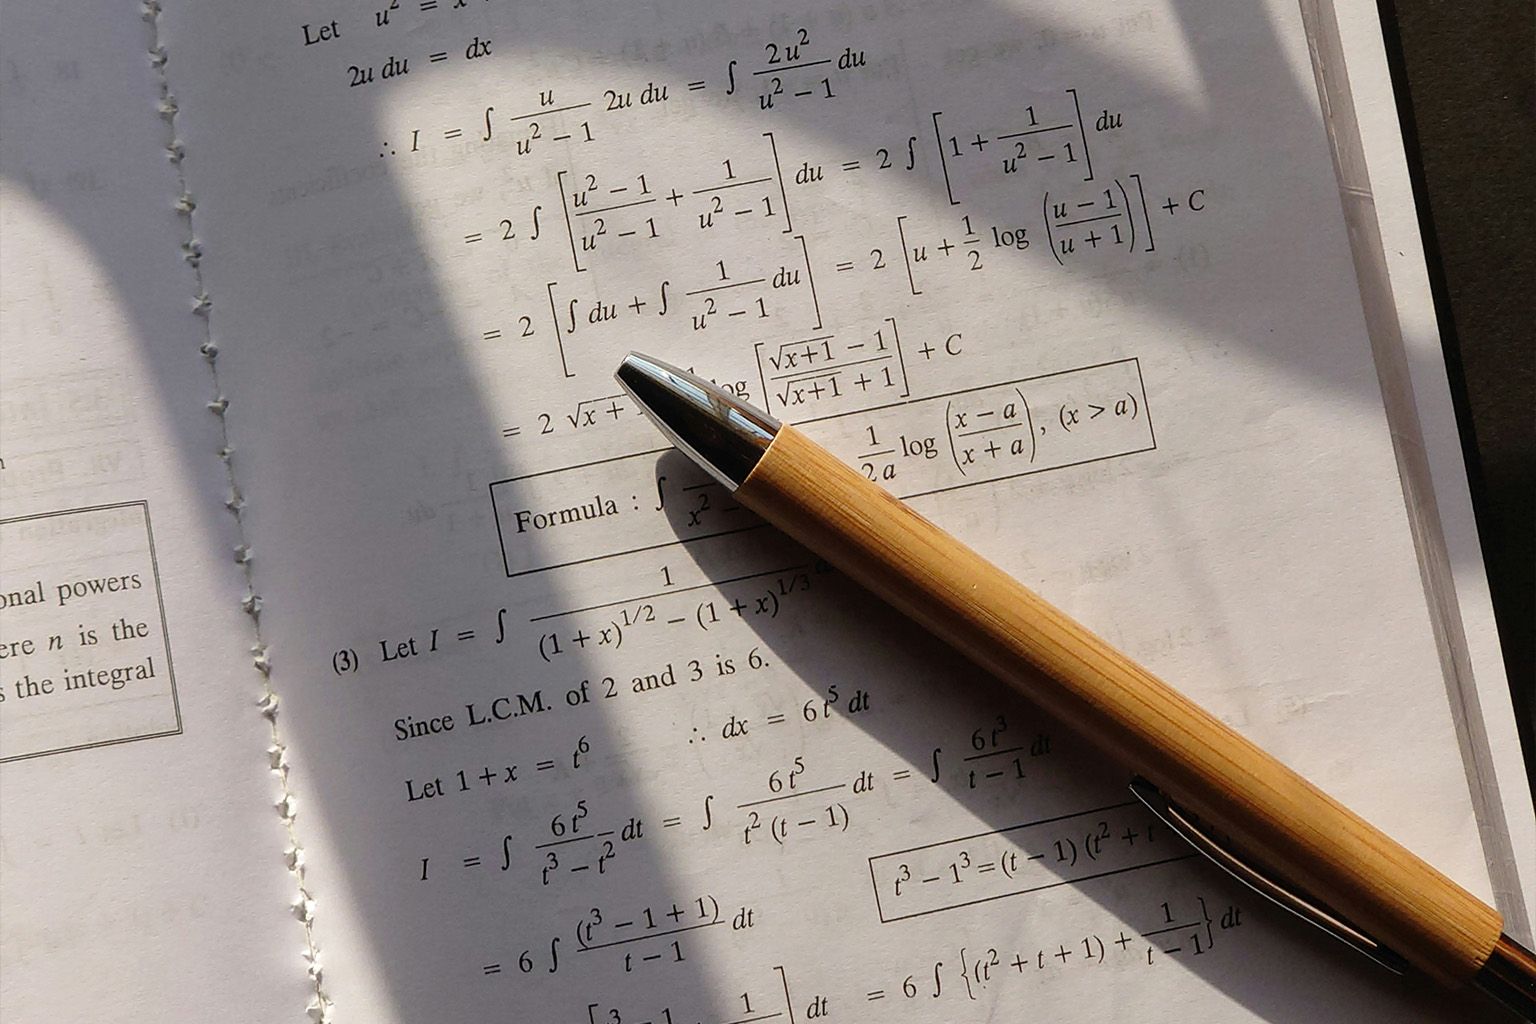 onal powers
ere n is the
s the integral
Let u² = x
2u du = dx
∴ I = ∫ u/(u² − 1) 2u du = ∫ 2u²/(u² − 1) du
= 2 ∫ [(u² − 1)/(u² − 1) + 1/(u² − 1)] du = 2 ∫ [1 + 1/(u² − 1)] du
= 2 [∫ du + ∫ 1/(u² − 1) du] = 2 [u + 1/2 log ((u − 1)/(u + 1))] + C
= 2 √x + log [(√x+1 − 1)/(√x+1 + 1)] + C
Formula : ∫ x² − 1/2a log ((x − a)/(x + a)), (x > a)
(3) Let I = ∫ 1/((1 + x)^1/2 − (1 + x)^1/3)
Since L.C.M. of 2 and 3 is 6.
Let 1 + x = t⁶ ∴ dx = 6t⁵ dt
I = ∫ 6t⁵/(t³ − t²) dt = ∫ 6t⁵/(t² (t − 1)) dt = ∫ 6t³/(t − 1) dt
= 6 ∫ (t³ − 1 + 1)/(t − 1) dt
t³ − 1³ = (t − 1) (t² + t
dt = 6 ∫ {(t² + t + 1) + 1/(t − 1)} dt